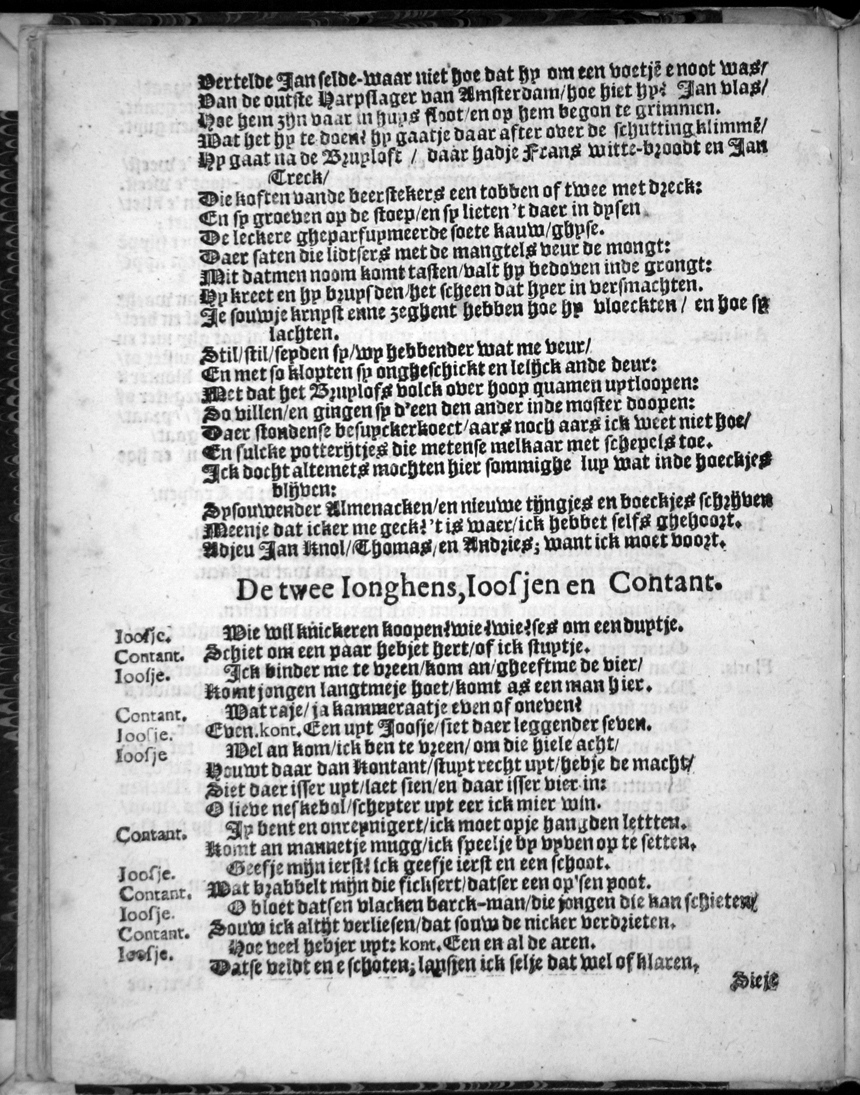 Vertelde Jan selde-waar niet hoe dat hy om een voetjē enoot was/
Van de outste Harpslager van Amsterdam/hoe hiet hy? Jan vlas/
Hoe hem zijn vaar in huys sloot/en op hem begon te grimmen.
Wat het hy te doen? hy gaatje daar after over de schutting klimmē/
Hy gaat na de Bruyloft / daar hadje Frans witte-broodt en Jan
Treck/
Die koften vande beerstekers een tobben of twee met dreck:
En sy groeven op de stoep/en sy lieten 't daer in dysen
De leckere gheparfuymeerde soete kauw/ghyse.
Daer saten die lidtsers met de mangtels veur de mongt:
Mit datmen noom komt tasten/valt hy bedoven inde grongt:
Hy kreet en hy bruysden/het scheen dat hyer in versmachten.
Je souwje krnyst enne zeghent hebben hoe hy vloeckten / en hoe sy
lachten.
Stil/stil/seyden sy/wy hebbender wat me veur/
En met so klopten sy ongheschickt en lelijck ande deur:
Met dat het Bruylofs volck over hoop quamen uytloopen:
So villen/en gingen sy d'een den ander inde moster doopen:
Daer stondense besuyckerkoect/aars noch aars ick weet niet hoe/
En sulcke potterijtjes die metense melkaar met schepels toe.
Ick docht altemets mochten hier sommighe luy wat inde hoeckjes
blijven:
Sysouwender Almenacken/en nieuwe tijngjes en boeckjes schrijven
Meenje dat icker me geck? 't is waer/ick hebbet selfs ghehoort.
Adjeu Jan Knol/Thomas/en Andries; want ick moet voort.
De twee Ionghens, Ioosjen en Contant.
Ioosje. Wie wil knickeren koopen?wie?wie?ses om een duytje.
Contant. Schiet om een paar hebjet hert/of ick stuytje.
Ioosje. Ick binder me te vreen/kom an/gheeftme de vier/
Komt jongen langtmeje hoet/komt as een man hier.
Contant. Wat raje/ja kammeraatje even of oneven?
Ioosje. Even. kont. Een uyt Joosje/siet daer leggender seven.
Ioosje Wel an kom/ick ben te vreen/ om die hiele acht/
Houwt daar dan Kontant/stuyt recht uyt/hebje de macht/
Siet daer isser uyt/laet sien/en daar isser vier in:
O lieve neskebol/schepter uyt eer ick mier win.
Contant. Jy bent en onreynigert/ick moet opje hangden lettten.
Komt an mannetje mugg/ick speelje by vyven op te setten.
Ioosje. Geefje mijn ierst? ick geefje ierst en een schoot.
Contant. Wat brabbelt mijn die ficksert/datser een op'sen poot.
Ioosje. O bloet datsen vlacken barck-man/die jongen die kan schieten/
Contant. Souw ick altijt verliesen/dat souw de nicker verdrieten.
Ioosje. Hoe veel hebjer uyt: kont. Een en al de aren.
Datse veldt en e schoten; lansjen ick selje dat wel of klaren.
Sieje